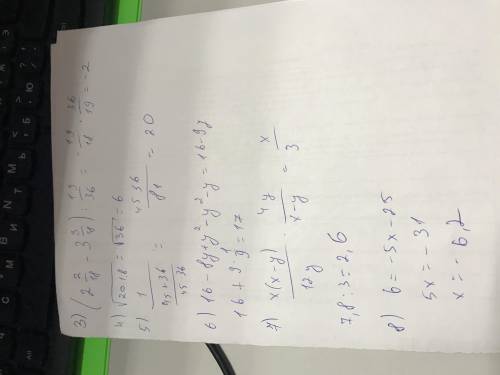 3) (2 2/18 - 3 3/18) : 19/36 = - 19/18 · 36/19 = -2
4) √20·1.8 = √36 = 6
5) 1/((45+36)/(45·36)) = 45·36/81 = 20
6) 16-8y+y²-y²-y = 16-9y
16+9·1/9=17
7) x(x-y)/12y · 4y/(x-y) = x/3
7,8:3=2,6
8) 6=-5x-25
5x=-31
x=-6,2